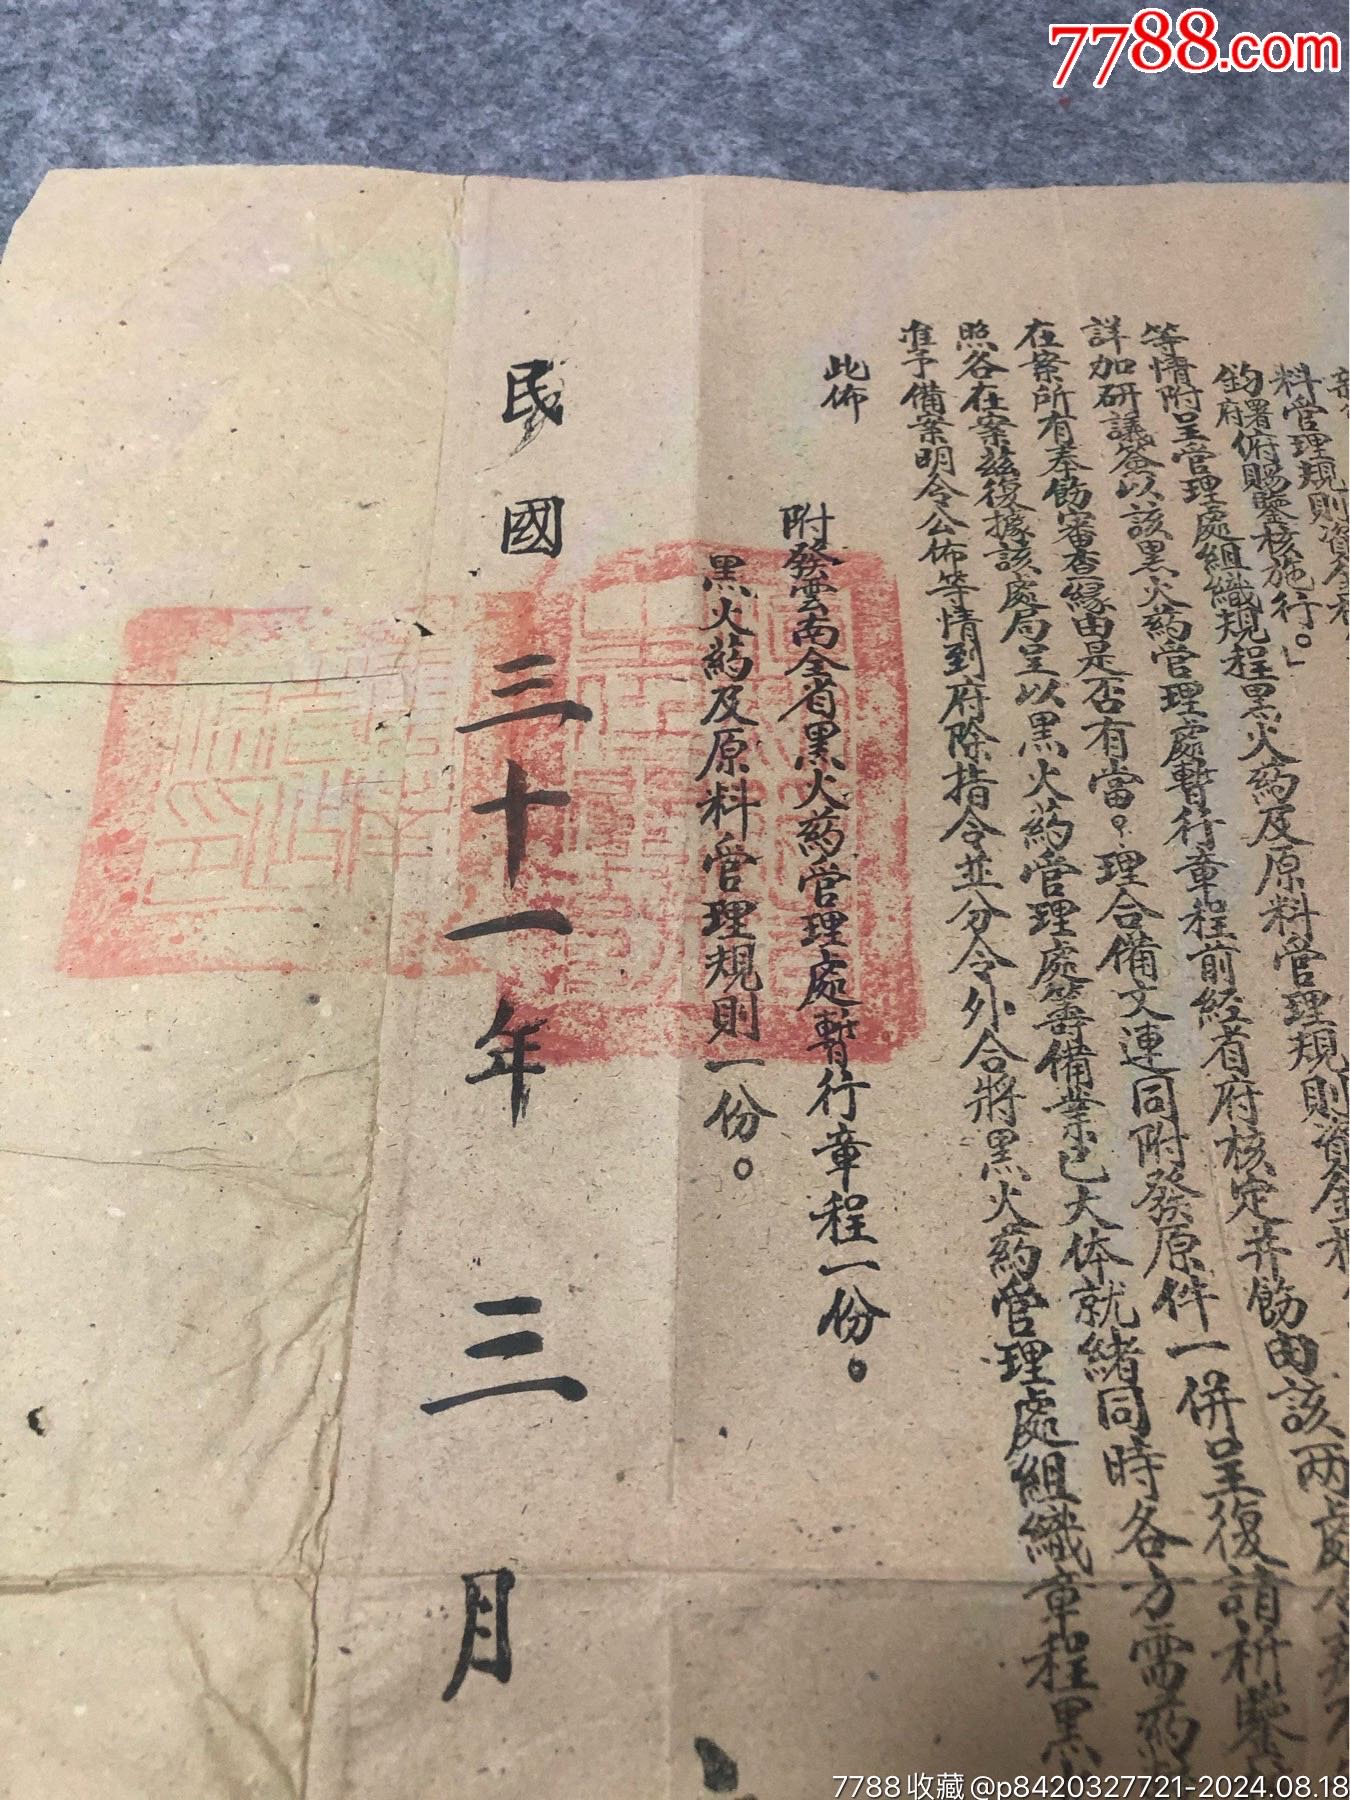 7788.com
料管理規則資金
鈞署府俯賜鑒核施行。」
等情附呈管理處組織規程黑火药及原料管理規則資金
詳加研議簽以該黑火药管理處暫行章程前經省府核定并飭由該両處
在案所有奉飭審查緣由是否有當。理合備文連同附發原件一併呈復請祈鑒
照各在案茲復據該處局呈以黑火药管理處籌備業已大体就緒同時各方需药
准予備案明令公佈等情到府除指令並分令外合將黑火药管理處組織章程黑
此佈
附發雲南全省黑火药管理處暫行章程一份。
黑火药及原料管理規則一份。
民國三十一年三月
7788收藏@p8420327721-2024.08.18